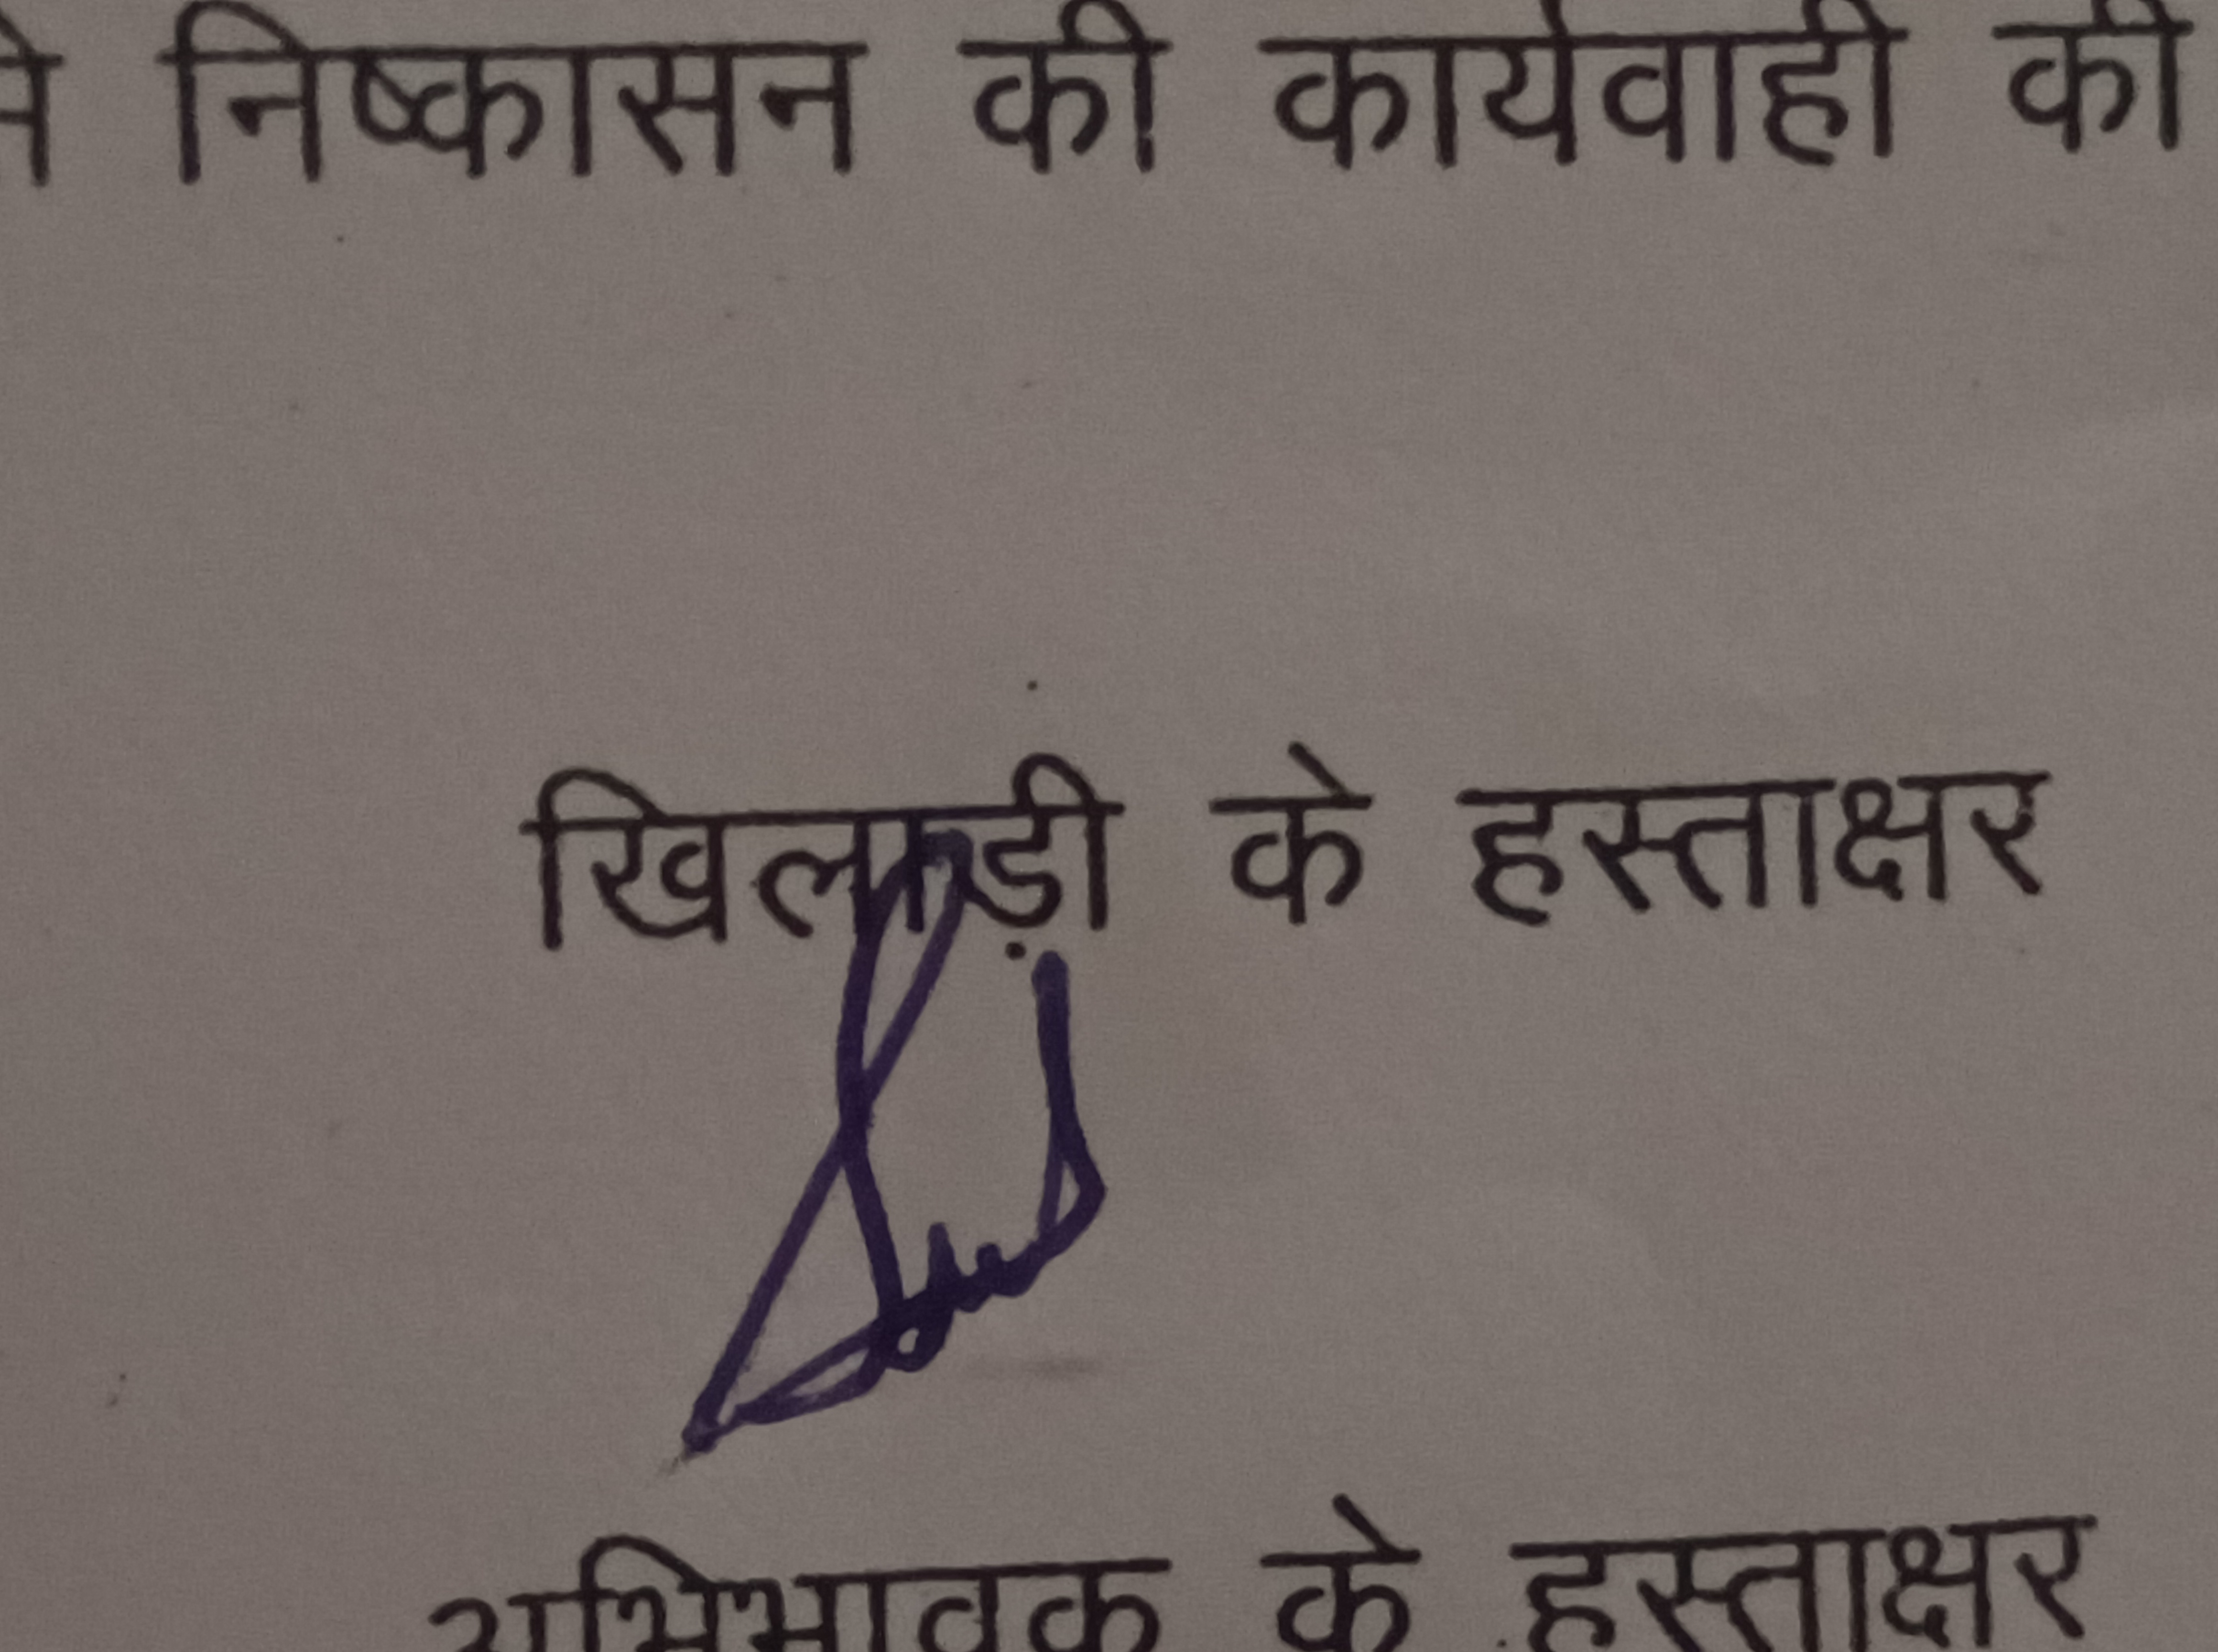 निष्कासन की कार्यवाही की
खिलाड़ी के हस्ताक्षर
अभिभावक के हस्ताक्षर